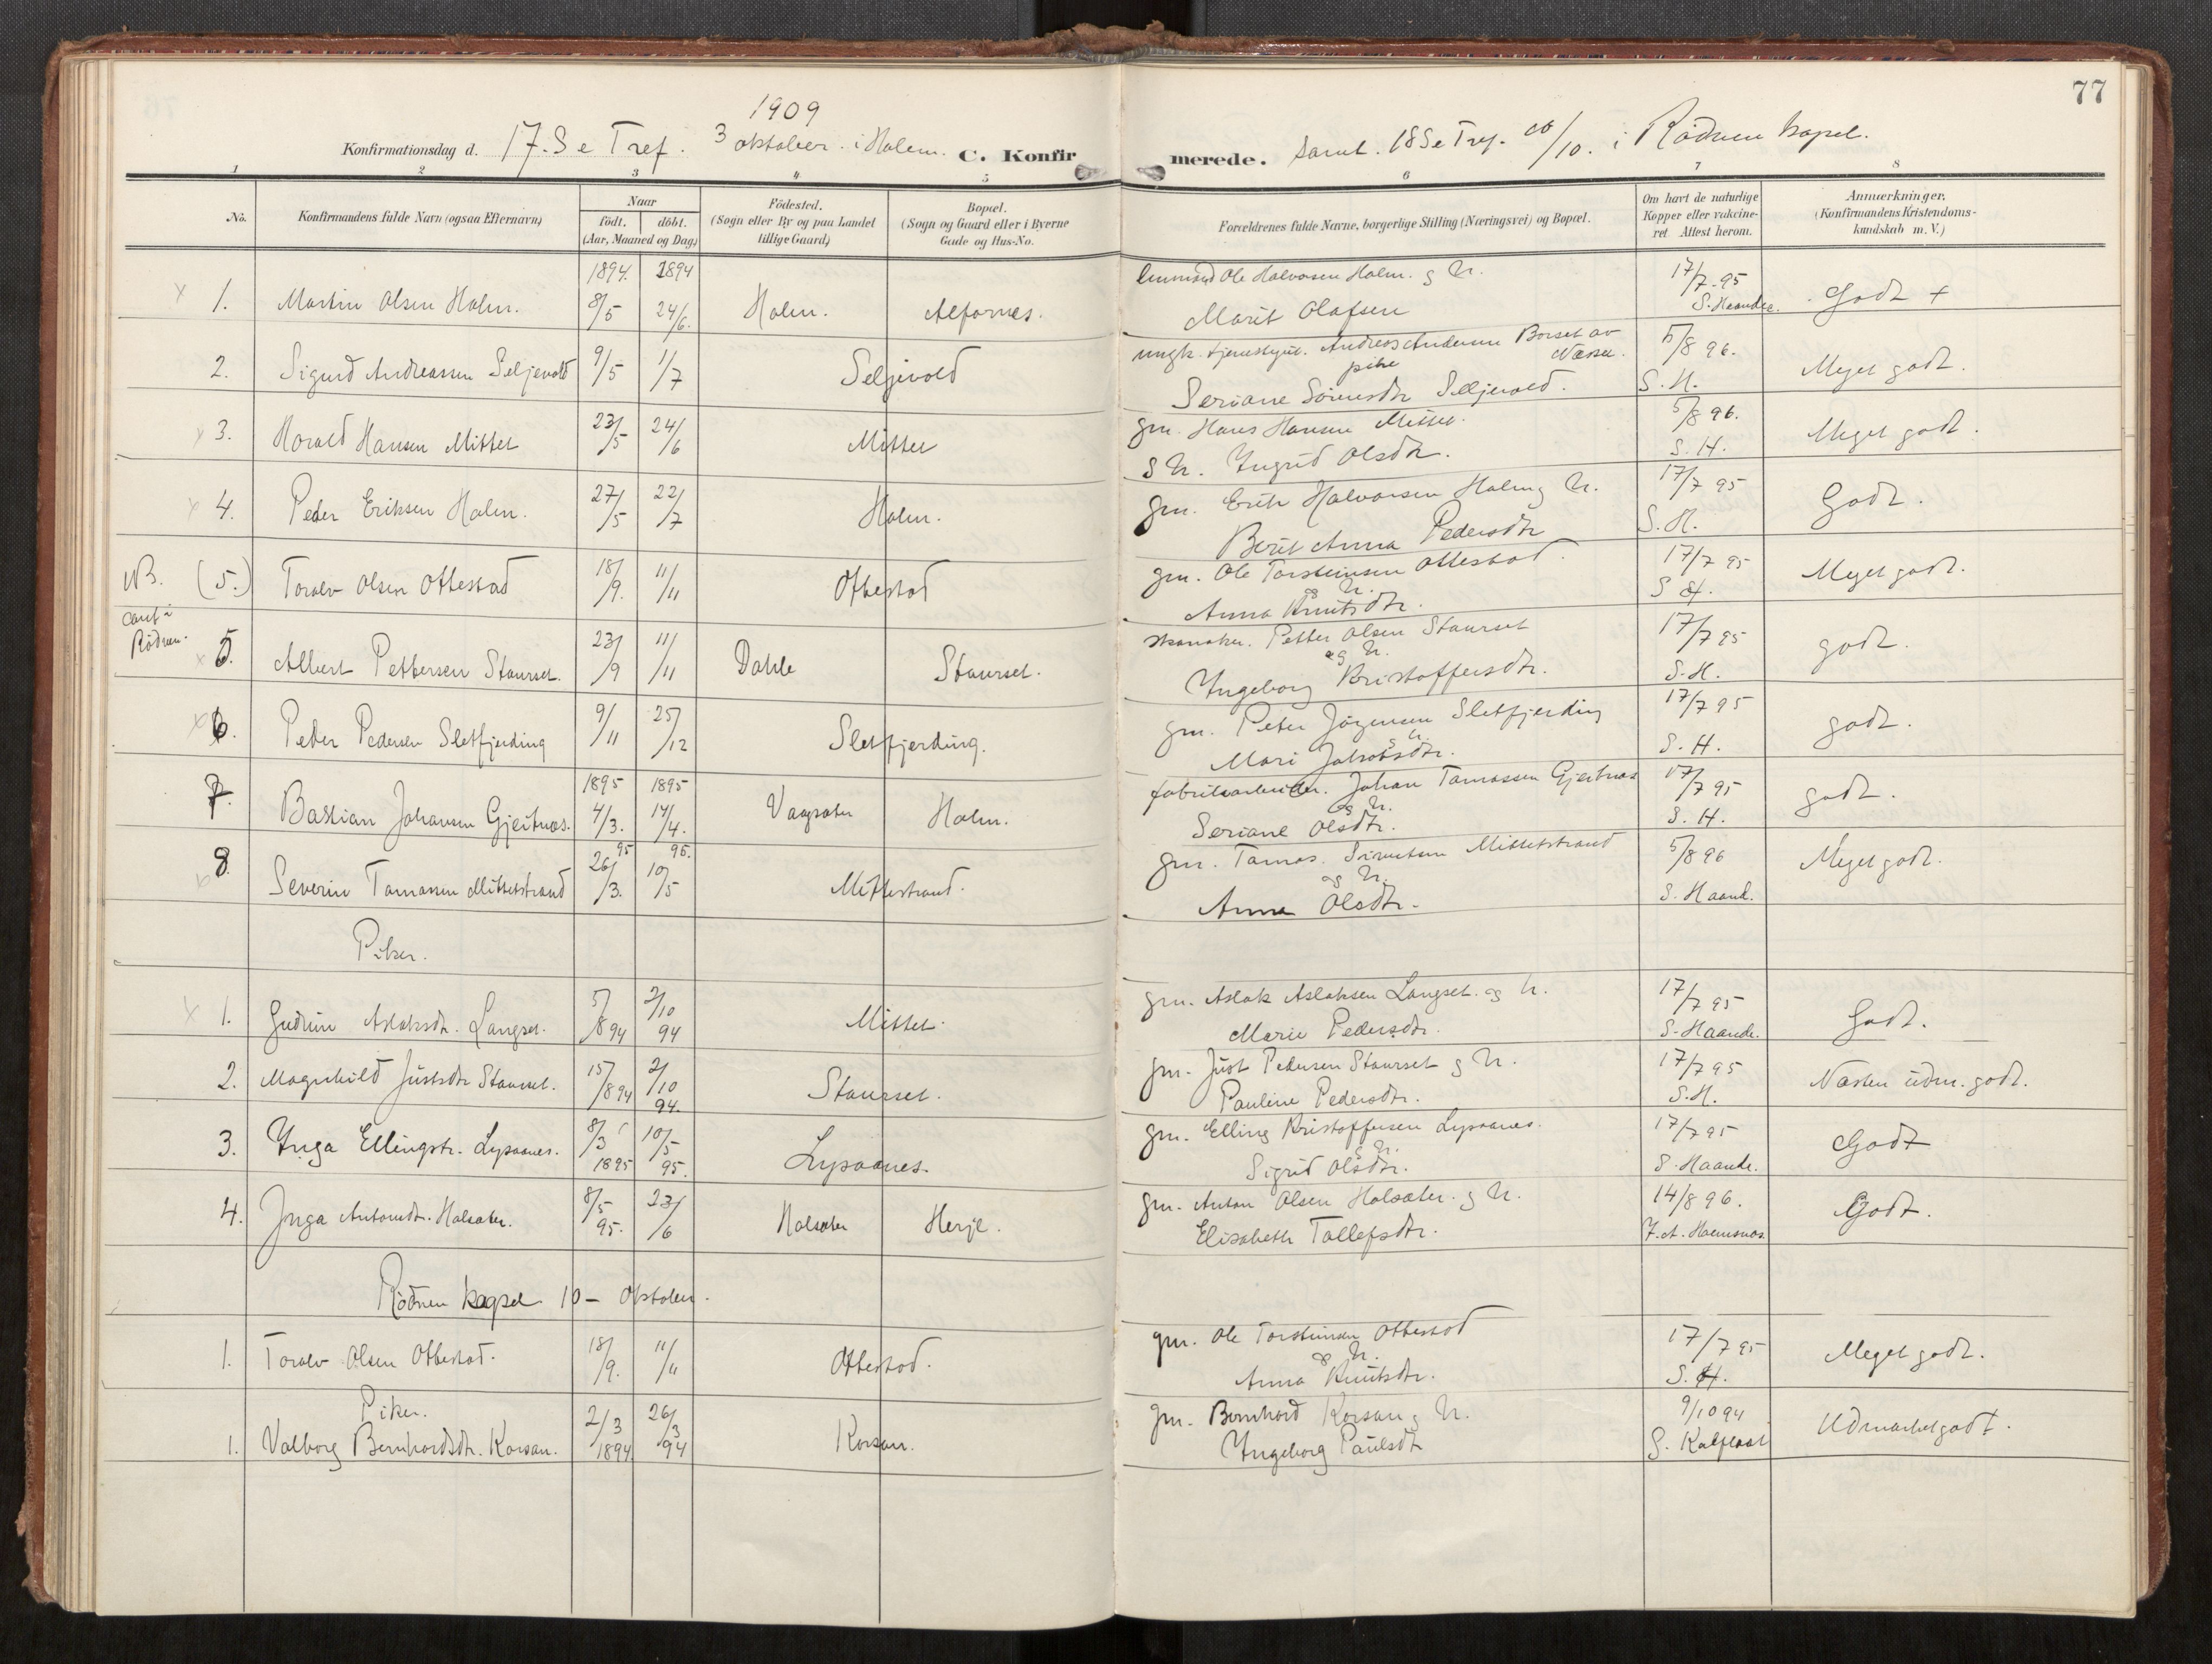 77
1909
Konfirmationsdag d. 17. S e Tref. 3 oktober i Holm. C. Konfirmerede. samt. 18 S e Tref. 10/10. i Rødven kapel.
1 2 3 4 5 6 7 8
No. Konfirmandens fulde Navn (ogsaa Efternavn) Naar födt. döbt. (Aar, Maaned og Dag) Födested. (Sogn eller By og paa Landet tillige Gaard) Bopæl. (Sogn og Gaard eller i Byerne Gade og Hus-No. Forældrenes fulde Navne, borgerlige Stilling (Næringsvei) og Bopæl. Om havt de naturlige Kopper eller vakcineret Attest herom. Anmærkninger. (Konfirmandens Kristendomskundskab m. V.)
1894. 1894
x 1. Martin Olsen Holm. 8/5 24/6. Holm. Alfarnes. Ole Halvorsen Holm. og h. Marit Olafsen 17/7-95 S. Haande. Godt +
2. Sigurd Andreassen Seljevold 9/5 1/7 Seljevold ungk. Andreas Andersen Borset av Næsset. pike Seriane Sörensdtr Seljevold. 5/8 96. S. H. Meget godt.
x 3. Harald Hansen Mittet 23/5 24/6 Mittet gm. Hans Hansen Mittet. og h. Ingrid Olsdtr. 5/8 96. S. H. Meget godt.
x 4. Peder Eriksen Holm. 27/5 22/7 Holm. gm. Erik Halvorsen Holm og h. Berit Anna Pedersdtr 17/7 95 S. H. Godt.
NB. (5.) Toralv Olsen Ottestad 18/9. 11/11 Ottestad gm. Ole Torsteinsen Ottestad og h. Anna Knutsdtr. 17/7 95 S H. Meget godt.
conf i Rødven.
x 5. Albert Pettersen Staurset. 23/9 11/11 Dahle Staurset. Petter Olsen Staurset og h. Ingeborg Kristoffersdtr. 17/7 95 S. H. godt.
x 6. Peder Pedersen Sletfjerding 9/11 25/12 Sletfjerding. gm. Peter Jörgensen Sletfjerding og h. Mari Jakobsdtr. 17/7 95 S. H. godt.
1895 1895
7. Bastian Johansen Gjeitnæs. 4/3. 14/4. Vaagsæter Holm. fabrikarbeider. Johan Tomassen Gjeitnæs og h. Seriane Olsdtr. 17/7 95 S. H. godt.
8. Severin Tomassen Mittetstrand 26/3. 95 10/5 95. Mittetstrand. gm. Tomas Mittetstrand og h. Anne Olsdtr. 5/8 96 S. Haand. Meget godt.
Piker.
x 1. Gudrun Aslaksdr. Langset. 5/8 94 2/10 94 Mittet. gm. Aslak Aslaksen Langset. og h. Marie Pedersdtr. 17/7 95 S. Haande. Godt.
2. Magnhild Justsdtr Staurset. 15/8 94 2/10 94. Staurset. gm. Just Pedersen Staurset og h. Pauline Pedersdtr. 17/7 95 S. H. Næsten udm. godt.
3. Inga Ellingstr. Lysvanes. 8/3 1895 10/5 95. Lysvanes. gm. Elling Kristoffersen Lysvanes. og h. Sigrid Olsdtr. 17/7 95 S. Haande. Godt
4. Inga Antonsdtr. Holsæter. 8/5 95. 23/6 Holsæter Herje. gm. Anton Olsen Holsæter. og h. Elisabeth Tollefsdtr. 14/8 96. Godt.
Rødven kapel 10 - Oktober.
1. Toralv Olsen Ottestad. 18/9. 11/11 Ottestad. gm. Ole Torsteinsen Ottestad og h. Anna Knutsdtr. 17/7 95 S. H. Meget godt.
Piker.
1. Valborg Bernhardsdtr. Korsan. 2/3 1894 26/3 94 Korsan. gm. Bernhard Korsan og h. Ingeborg Paulsdtr 9/10 94 Udmærket godt.